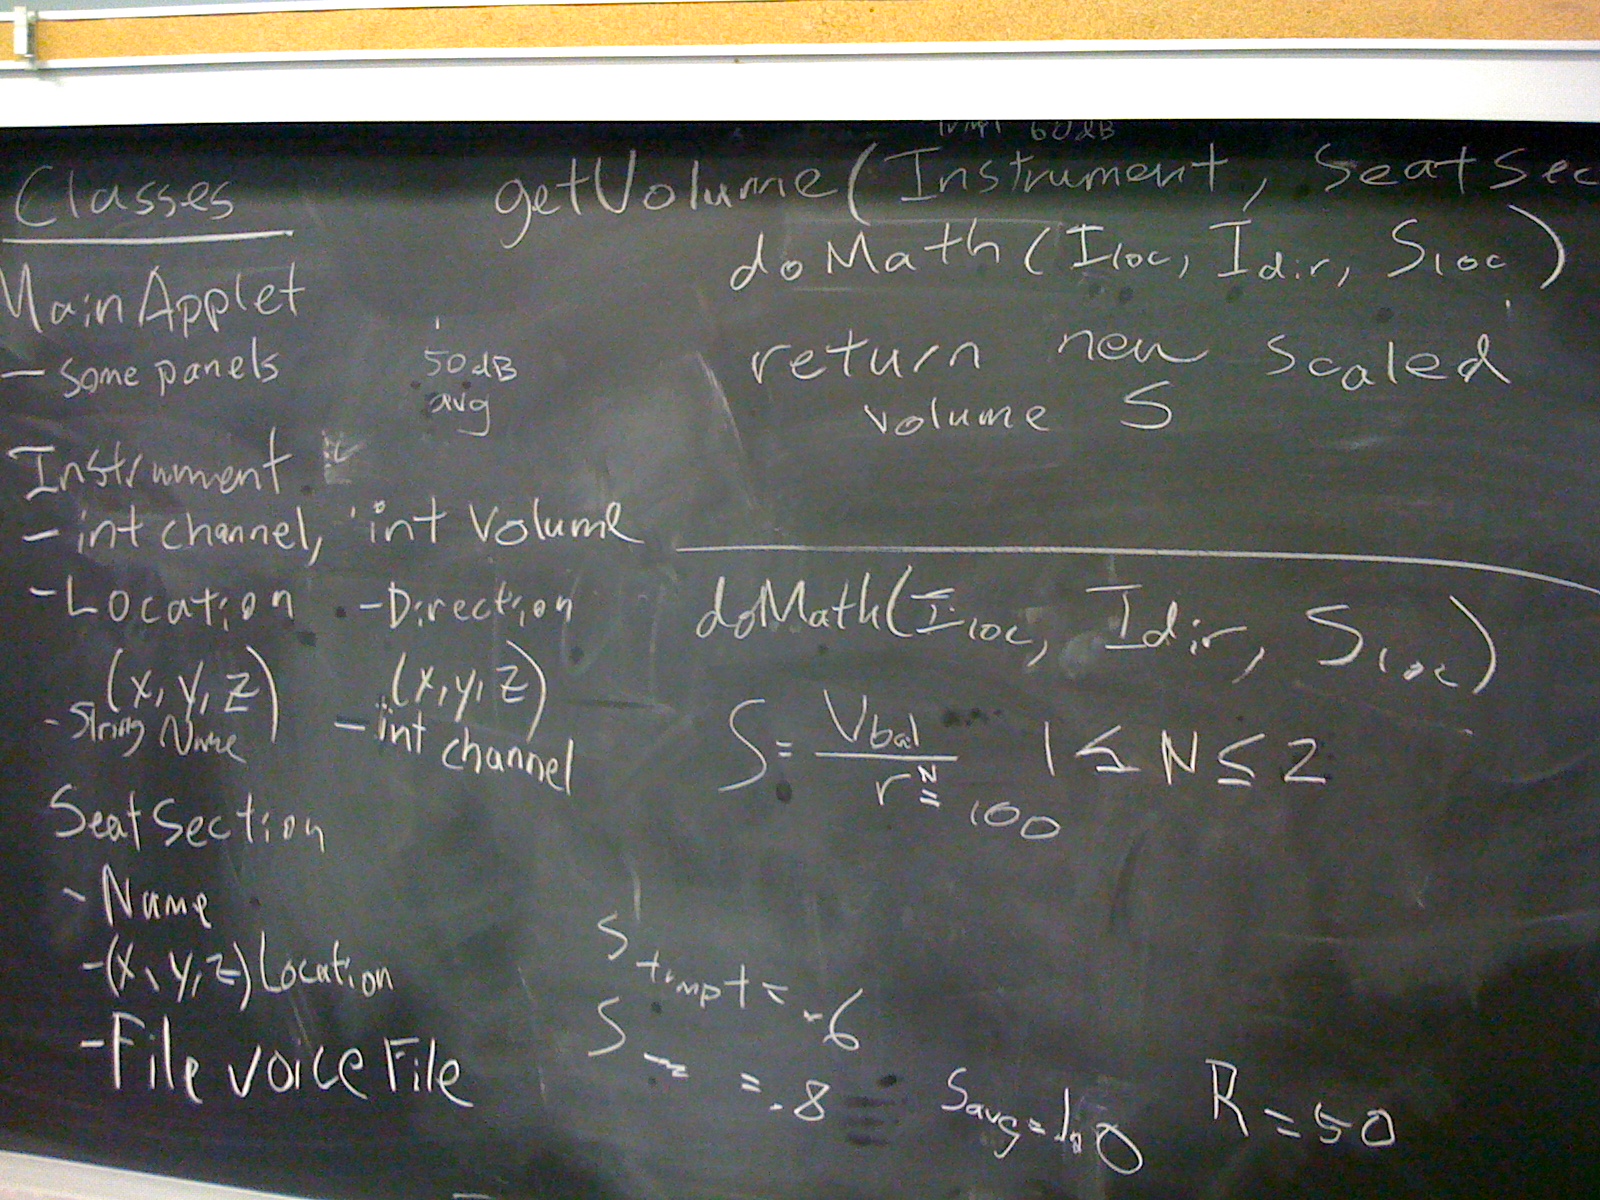 Classes
MainApplet
- some panels
50dB
avg
Instrument
- int channel, int Volume
- Location - Direction
(x, y, z) (x, y, z)
- String Name - int channel
SeatSection
- Name
- (x, y, z) Location
- File voiceFile
60dB
getVolume(Instrument, SeatSec
doMath(Iloc, Idir, Sloc)
return new scaled
volume S
doMath(Iloc, Idir, Sloc)
S = Vbal / r^N 1 ≤ N ≤ 2
100
Strmpt = .6
S = .8
Savg = 1.0 R = 50